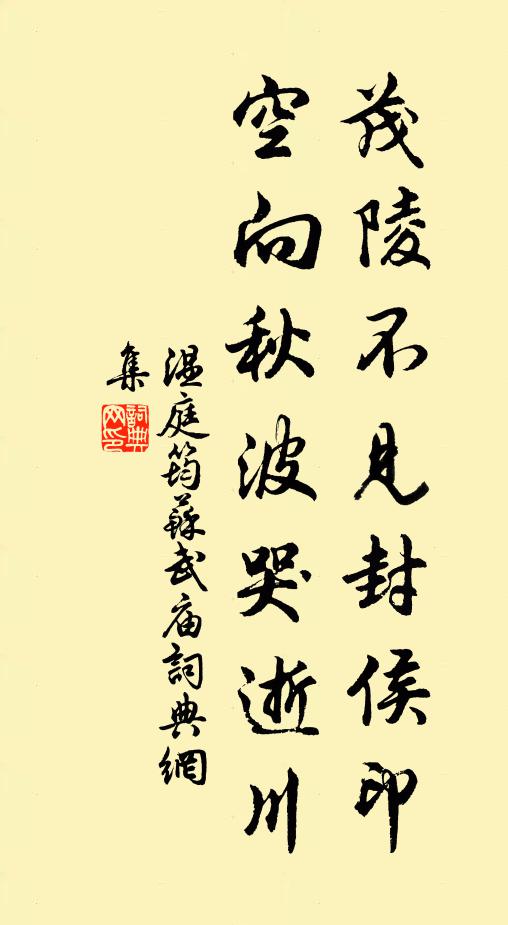 茂陵不見封侯印
空向秋波哭逝川
温庭筠蘇武庙詞典網
集
詞典
网印